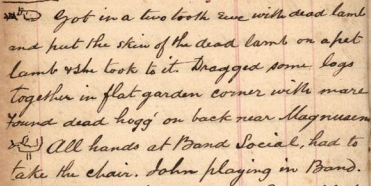 Got in a two tooth ewe with dead lamb
and put the skin of the dead lamb on a pet
lamb & she took to it. Dragged some logs
together in flat garden corner with mare
Found dead hogg on back near Magnusem
All hands at Band Social, had to
take the chair. John playing in Band.